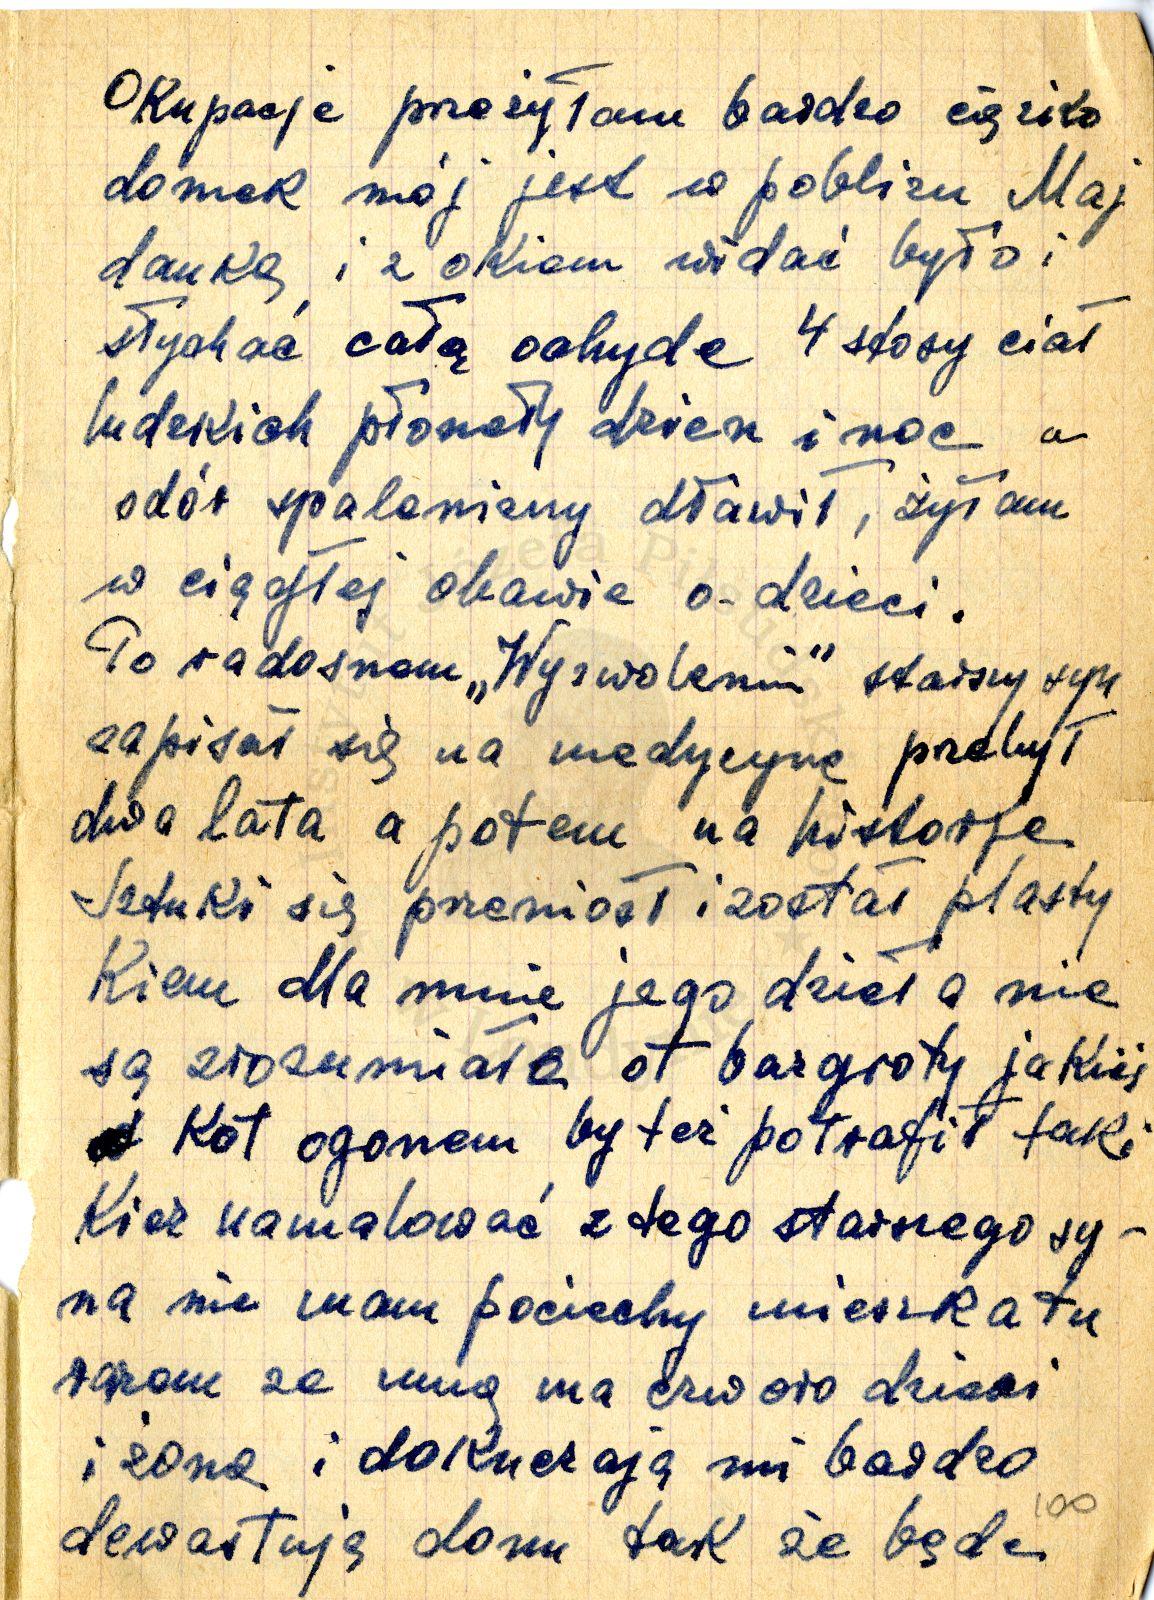 Okupacje przeżyłam bardzo cięzko
domek mój jest w poblizu Maj
danką i z okiem widać było i
słychać całą ochyde 4 stosy ciał
ludzkich płoneły dzien i noc a
odór spalenizny dławił, żyłam
w ciągłej obawie o dzieci.
Po radosnem „Wyzwoleniu” starszy syn
zapisał się na medycynę przebył
dwa lata a potem na historje
Sztuki się przeniosł i został plasty
Kiem dla mnie jego dzieła nie
są zrozumiałe ot bazgroty jakiś
Kot ogonem by też potrafił taki
Kicz namalować z tego starszego sy-
na nie mam pociechy mieszka tu
razem ze mną ma czworo dzieci
i żone i dokuczają mi bardzo
dewastują domu tak że będe
100